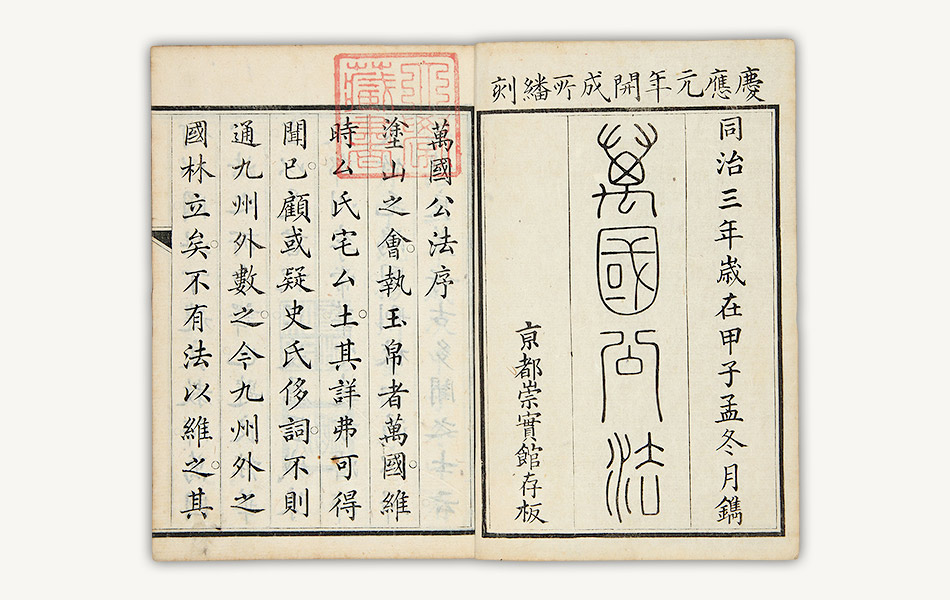 慶應元年開成所繙刻
同治三年歲在甲子孟冬月鐫
萬國公法
亰都崇實館存板
藏書
萬國公法序
塗山之會。執玉帛者萬國。維
時厶氏宅厶土。其詳弗可得
聞已。顧或疑史氏侈詞。不則
通九州外數之。今九州外之
國林立矣。不有法以維之。其